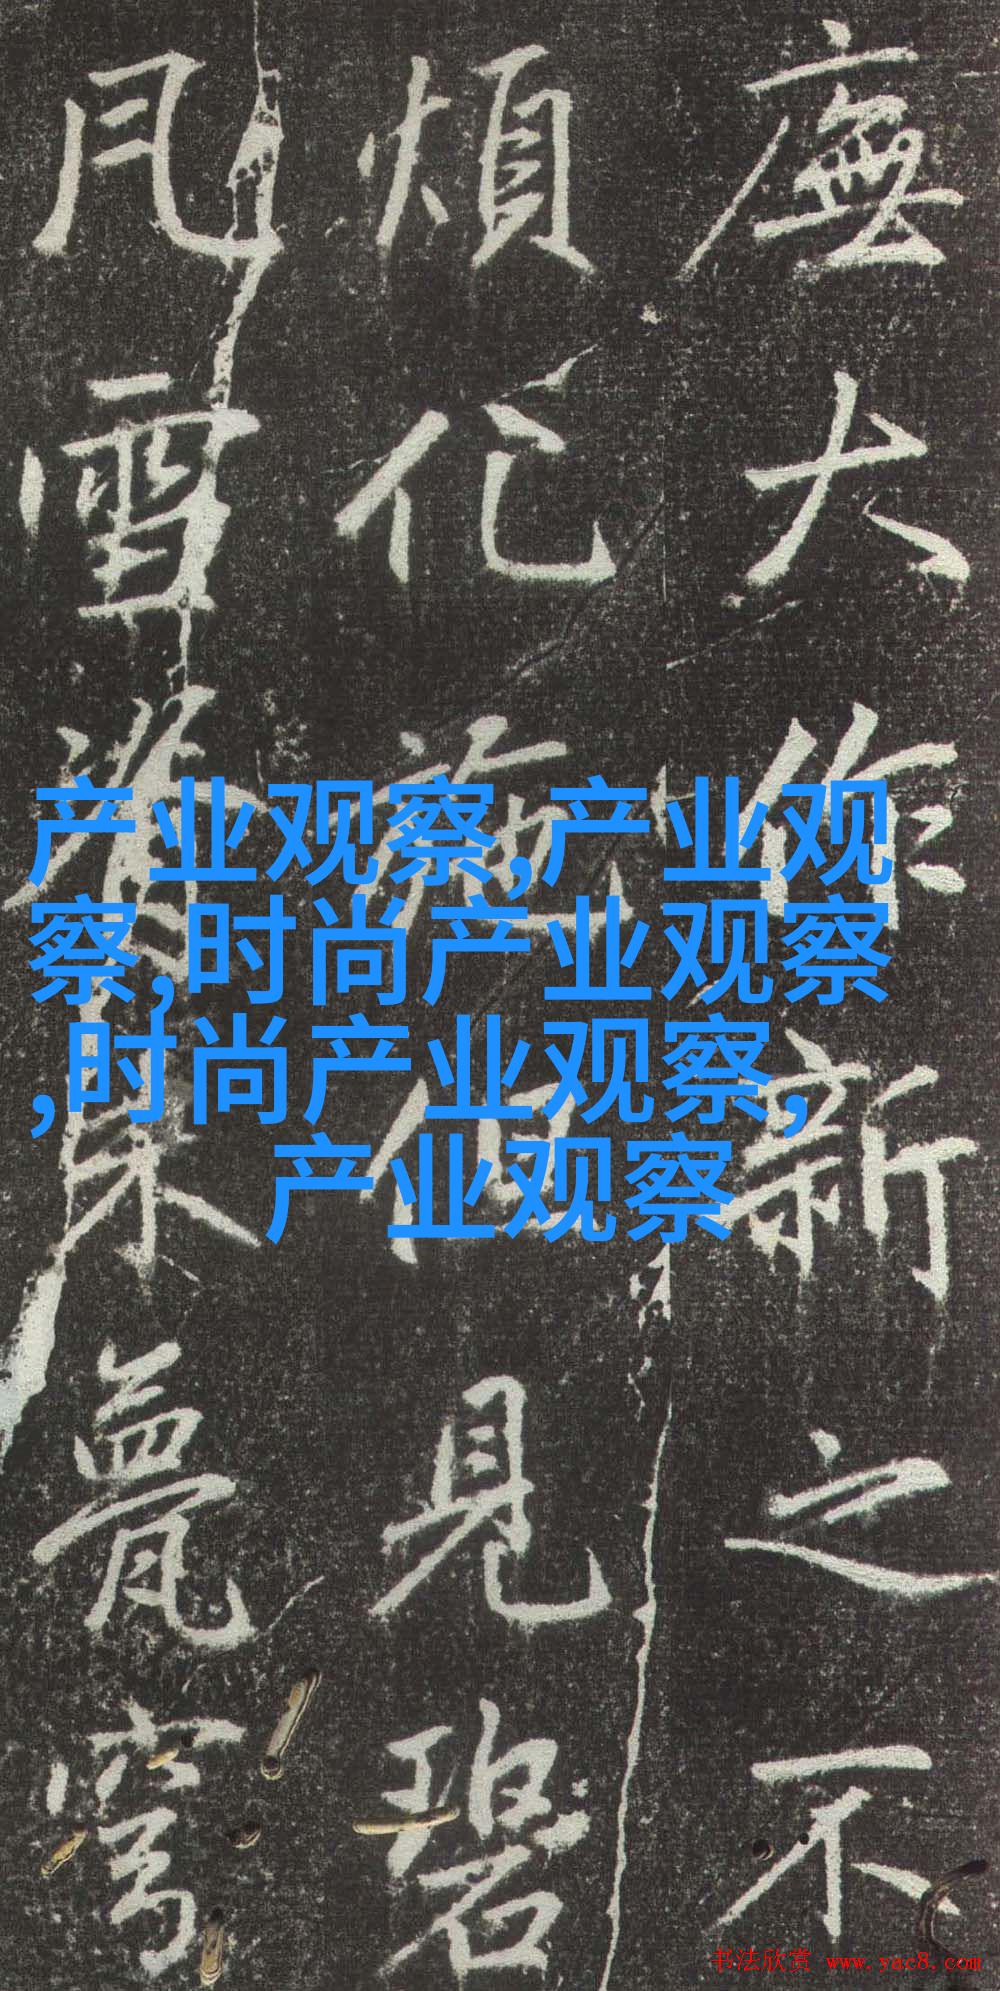 廡大作新之不
煩化施但見碧
风雪賓來甍穹
产业观察,产业观
察,时尚产业观察
,时尚产业观察,
产业观察
书法欣赏 www.yac8.com